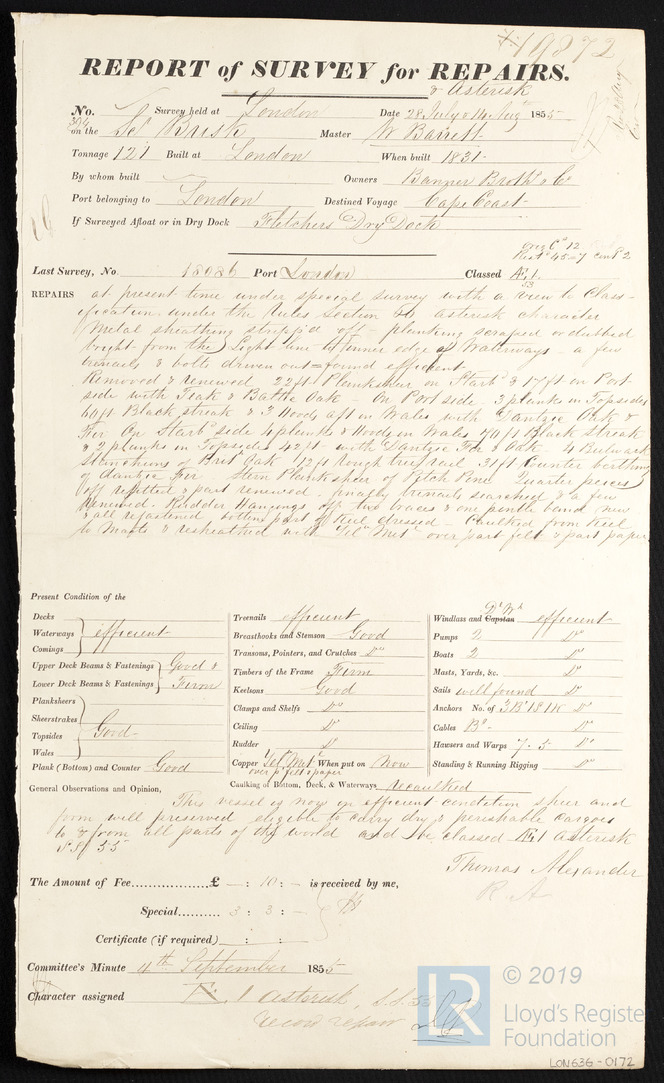 19872
REPORT of SURVEY for REPAIRS.
& Asterisk
No. Survey held at London Date 28 July & 14 Aug 1855
394 on the Scr Brisk Master W Barrett
Tonnage 121 Built at London When built 1831
By whom built Owners Banner Brothrs & Co
Port belonging to London Destined Voyage Cape Coast
If Surveyed Afloat or in Dry Dock Fletchers Dry Dock
Last Survey, No. 18026 Port London Classed Æ 1
53
REPAIRS at present time under special survey with a view to Class-
ification under the Rules Section asterisk character
Metal sheathing stripp'd off - planking scraped or dubbed
bright from the Light line to inner edge of Waterways - a few
trenails & bolts driven out = found efficient
Removed & renewed 22 ft Planksheer on Starbd & 17 ft on Port
side with Teak & Baltic Oak - On Port side 3 planks in Topsides
60 ft Black streak & 3 Hoods aft on Wales with Dantzic Oak &
Fir On Starbd side 4 planks & Hoods in Wales 70 ft Black Streak
& 2 planks in Topsides 42 ft with Dantzic Fir & Oak 4 Bulwark
Stanchions of Brit Oak 42 ft rough tree rail 31 ft Counter birthing
of dantzic Fir Stern Planksheer of Pitch Pine Quarter pieces
off refitted & part renewed. finally trenails searched & a few
renewed. Rudder Hangings off two braces & one pintle band new
& all refastened bottom part of Keel dressed - Caulked from Keel
to & resheathed with Yel Met over part felt & part paper
Present Condition of the
Decks
Waterways efficient
Comings
Upper Deck Beams & Fastenings Good &
Lower Deck Beams & Fastenings Firm
Planksheers
Sheerstrakes
Topsides Good
Wales
Plank (Bottom) and Counter Good
Treenails efficient
Breasthooks and Stemson Good
Transoms, Pointers, and Crutches Do
Timbers of the Frame Firm
Keelsons Good
Clamps and Shelfs Do
Ceiling Do
Rudder Do
Copper Yel Met When put on Now
over p felt & paper
Caulking of Bottom, Deck, & Waterways recaulked
Windlass and Capstan efficient
Pumps 2 Do
Boats 2 Do
Masts, Yards, &c. Do
Sails well found Do
Anchors No. of 3 B 1 S 1 K Do
Cables Do
Hawsers and Warps 7. 5 Do
Standing & Running Rigging Do
General Observations and Opinion, This vessel is now in efficient condition sheer and
form well preserved eligible to carry dry & perishable cargoes
to & from all parts of the world and be classed Æ 1 asterisk
S S 55
Thomas Alexander
The Amount of Fee £ — : 10 : — is received by me,
Special 3 : 3 : —
Certificate (if required) : :
Committee's Minute 4th September 1855
Character assigned Æ 1 asterisk, S.S. 55
record repair
© 2019
LR
Lloyd's Register
Foundation
LON636-0172